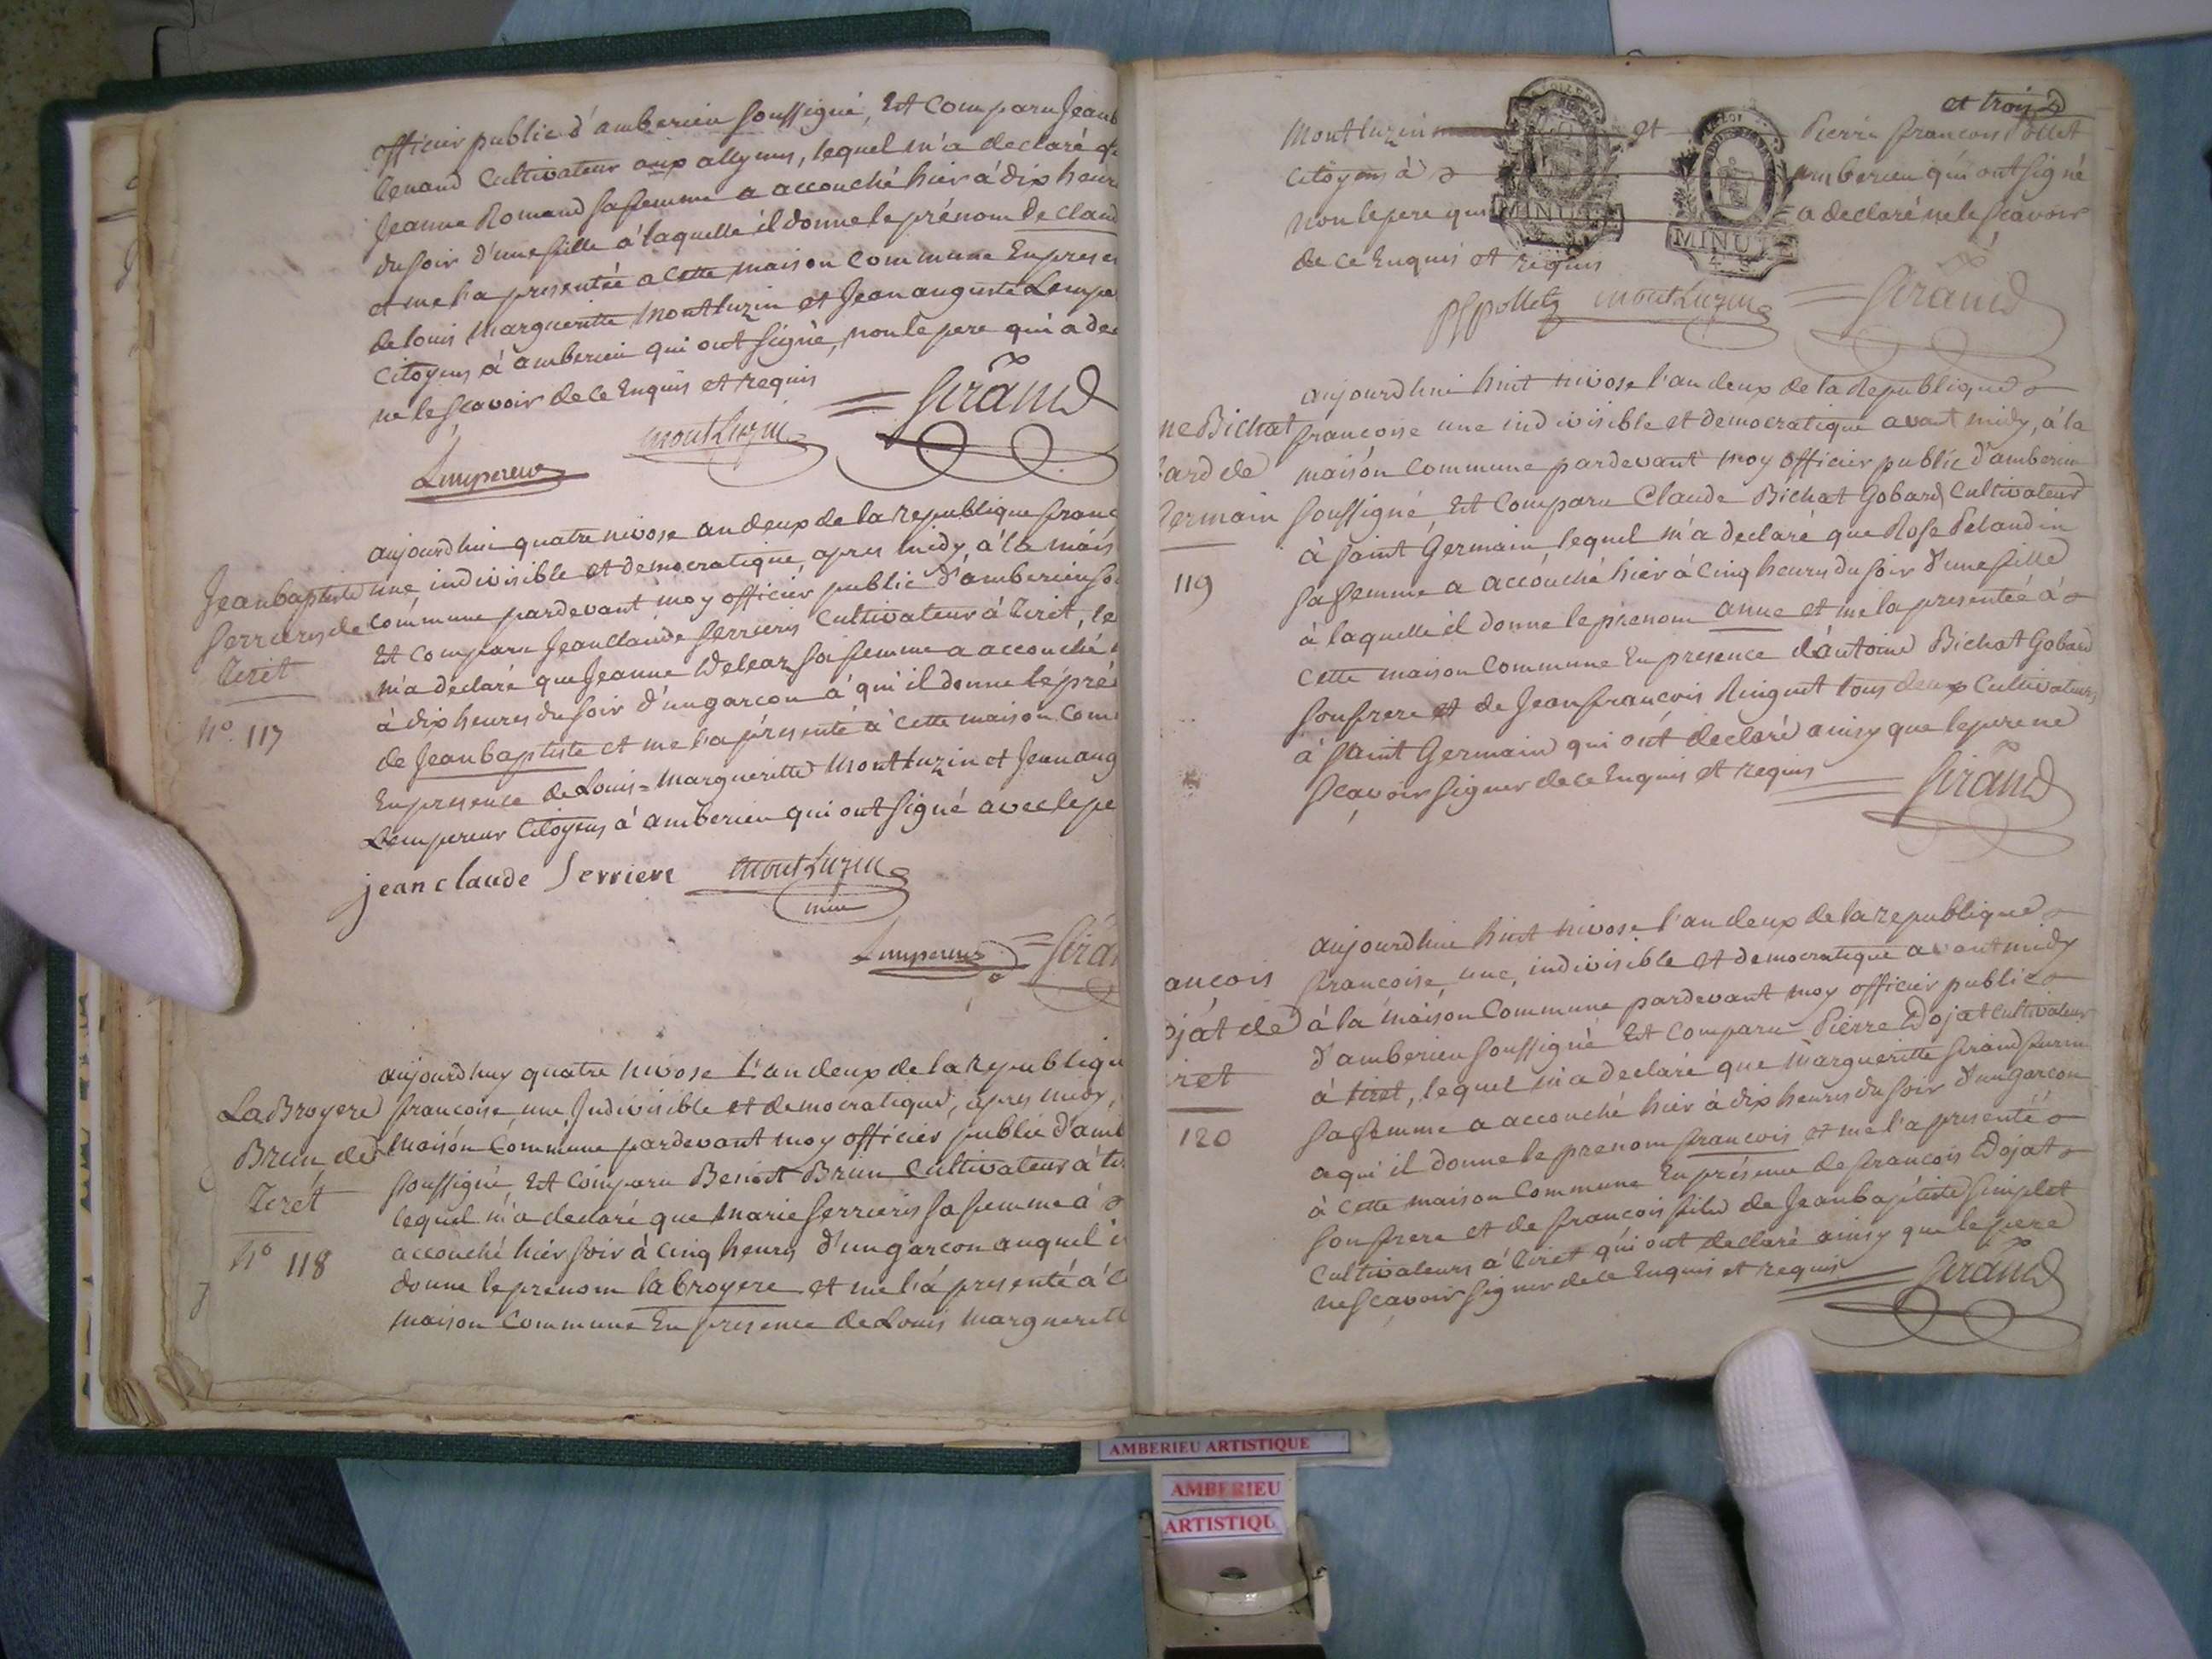 officier public d'amberieu soussigné, Est Comparu Jean
Cultivateur aux allymes, lequel m'a declaré
Jeanne Romand sa femme a accouché hier à dix heur
du soir d'une fille à laquelle il donne le prénom de Claud
et me l'a presentée a Cette maison Commune En presen
de louis Margueritte Montluzin et Jean auguste Lempe
Citoyens à amberieu qui ont signé, non le pere qui a de
ne le scavoir de ce Enquis et requis
Lempereur
MontLuzin
= Girand
aujourdhui quatre nivose an deux de la republique franc
une, indivisible et democratique, apres midy, à la mais
Commune pardevant moy officier public d'amberieu so
Est Comparu Jean Claude ferrieres Cultivateur à Tiret, le
m'a declaré que Jeanne sa femme a accouché
à dix heures du soir d'un garcon à qui il donne le pré
de Jean baptiste et me l'a présenté à cette maison Com
En presence de Louis = Margueritte Montluzin et Jean aug
Lempereur Citoyens à amberieu qui ont signé avec le pe
Jean baptiste
ferrieres de
Tiret
N.° 117
jean claude ferriere
MontLuzin
Lempereur
= Giran
aujourdhuy quatre nivose L'an deux de la Republiqu
francoise une Indivisible et democratique, apres midy,
maison Commune pardevant moy officier public d'amb
soussigné, Est Comparu Benoit Brun Cultivateur à ti
lequel m'a declaré que Marie ferrieres sa femme à
accouché hier soir à Cinq heures d'un garcon auquel i
donne le prenom la broyere et me l'a presenté à C
Maison Commune En presence de Louis Margueritt
La Broyere
Brun de
Tiret
N° 118
et trois
Montluzin et Pierre francois Pollet
Citoyens à amberieu qui ont signé
Non le pere qui a declaré ne le scavoir
de ce Enquis et requis
MINUT
MINUT
Pfpollet
MontLuzin
= Girand
aujourdhui huit nivose l'an deux de la Republique
francoise une indivisible et democratique avant midy, à la
maison Commune pardevant moy officier public d'amberieu
soussigné, Est Comparu Claude Bichat Gobard Cultivateur
à saint Germain, lequel m'a declaré que Rose Pelandin
sa femme a accouché hier à Cinq heures du soir d'une fille
à laquelle il donne le prenom anne et me la presenteé à
cette maison Commune En presence d'antoine Bichat Gobard
son frere et de Jean francois Ringuet tous deux Cultivateurs
à saint Germain qui ont declaré ainsy que le pere ne
scavoir signer de ce Enquis et requis
= Girand
ne Bichat
bard de
Germain
119
aujourdhui huit nivose l'an deux de la republique
francoise, une, indivisible et democratique avant midy
à la maison Commune pardevant moy officier public
d'amberieu soussigné Est Comparu Pierre Dojat Cultivateur
à tiret, lequel m'a declaré que Margueritte
sa femme a accouché hier à dix heures du soir d'un garcon
a qui il donne le prenom francois et me l'a presenté
à cette maison Commune En présence de francois Dojat
son frere et de francois fils de Jean baptiste Simplet
Cultivateurs à tiret qui ont declaré ainsy que le pere
ne scavoir signer de ce Enquis et requis
= Girand
ancois
ojat de
iret
120
AMBERIEU ARTISTIQUE
AMBERIEU
ARTISTIQU